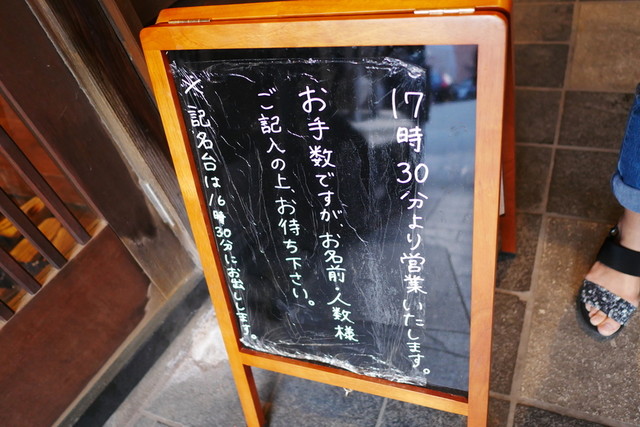 17時30分より営業いたします。
お手数ですが、お名前・人数様
ご記入の上、お待ち下さい。
※記名台は16時30分にお出しします。